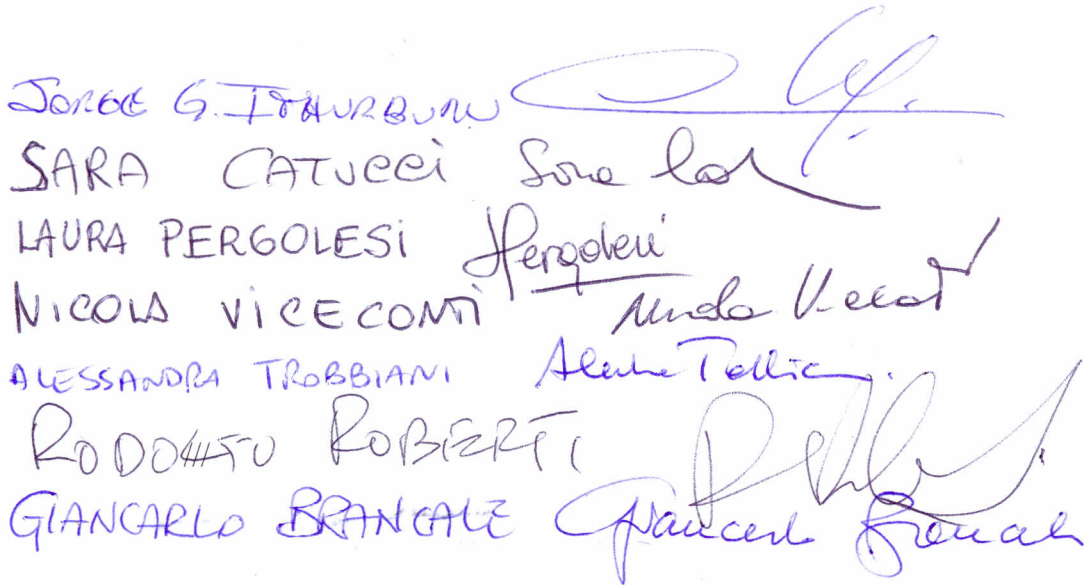 JORGE G. ITHURBURU
SARA CATUCCI Sara Cat
LAURA PERGOLESI Pergolesi
NICOLA VICECONTI Nicola Vicecont
ALESSANDRA TROBBIANI
ROBERTI
GIANCARLO BRANCALE Giancarlo Brancale